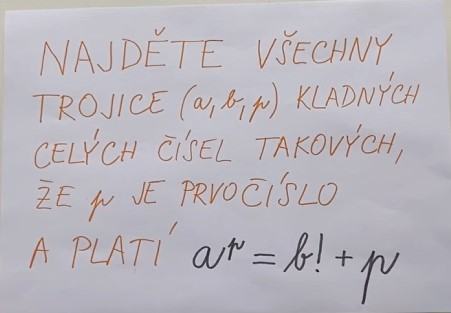 NAJDĚTE VŠECHNY
TROJICE (a,b,p) KLADNÝCH
CELÝCH ČÍSEL TAKOVÝCH,
ŽE p JE PRVOČÍSLO
A PLATÍ aᵖ = b! + p